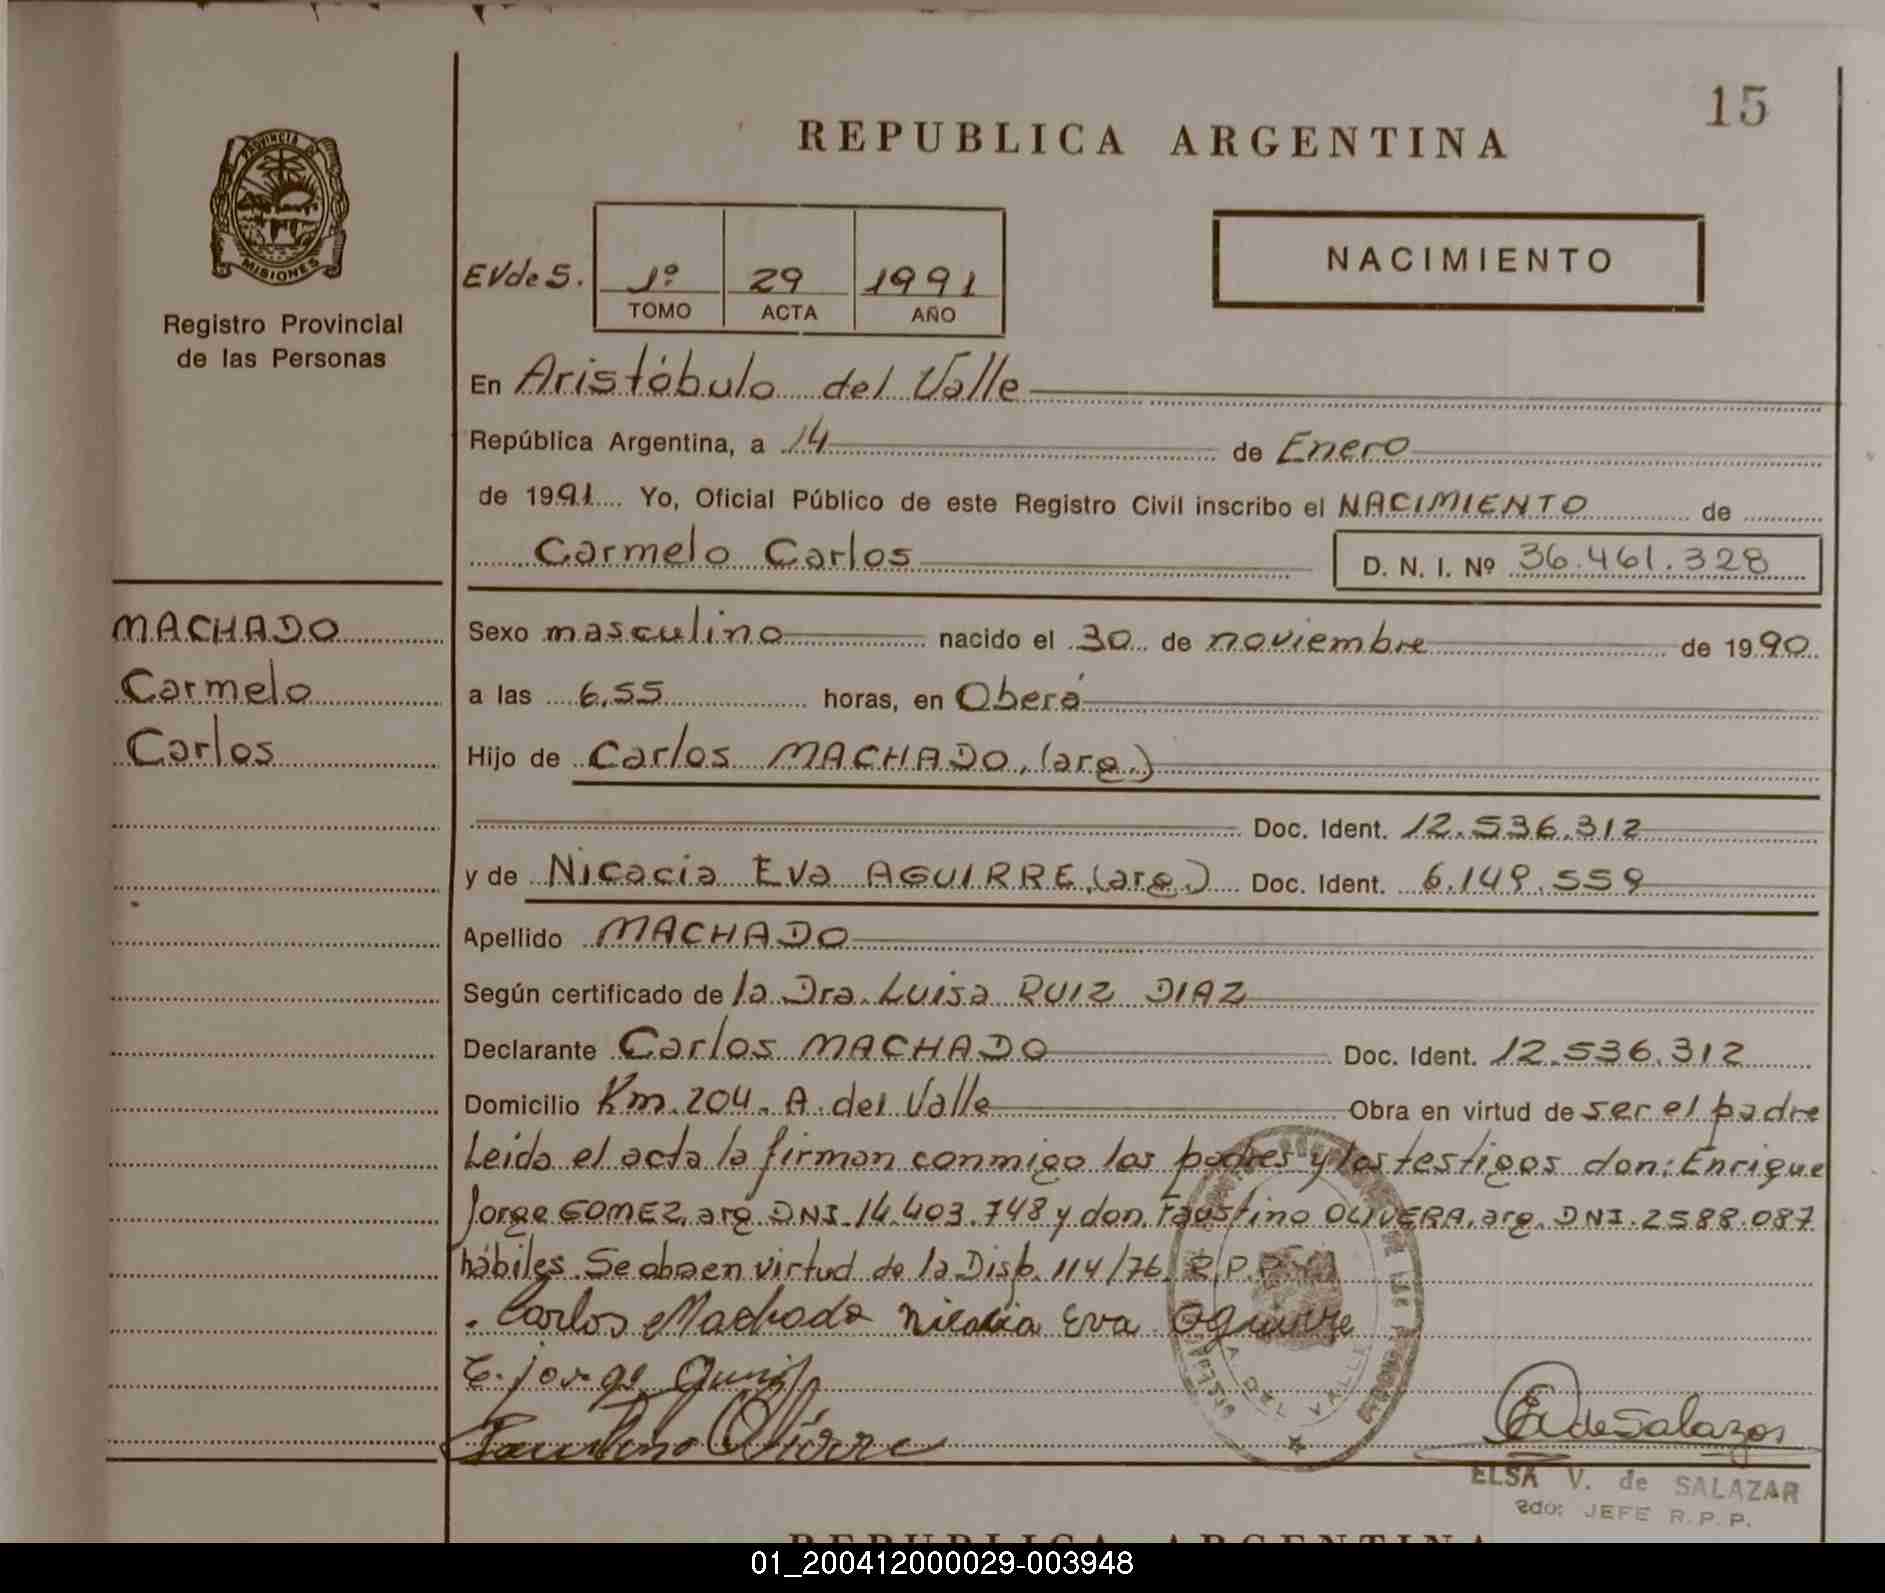 15
REPUBLICA ARGENTINA
PROVINCIA DE
MISIONES
Registro Provincial
de las Personas
NACIMIENTO
EVdeS. 1º 29 1991
TOMO ACTA AÑO
En Aristóbulo del Valle
República Argentina, a 14 de Enero
de 1991 Yo, Oficial Público de este Registro Civil inscribo el NACIMIENTO de
Carmelo Carlos D. N. I. Nº 36.461.328
MACHADO
Carmelo
Carlos
Sexo masculino nacido el 30 de noviembre de 1990
a las 6,55 horas, en Oberá
Hijo de Carlos MACHADO, (arg.)
Doc. Ident. 12.536.312
y de Nicacia Eva AGUIRRE, (arg.) Doc. Ident. 6.149.559
Apellido MACHADO
Según certificado de la Dra. Luisa RUIZ DIAZ
Declarante Carlos MACHADO Doc. Ident. 12.536.312
Domicilio Km. 204. A. del Valle Obra en virtud de ser el padre
Leída el acta la firman conmigo los padres y los testigos don: Enrique
Jorge GOMEZ, arg. DNI. 14.403.748 y don Faustino OLIVERA, arg. DNI. 2588.087
hábiles. Se obra en virtud de la Disp. 114/76. R.P.P.
Carlos Machado Nicacia Eva Aguirre
E. Jorge
Faustino
A DEL VALLE
EVdeSalazar
ELSA V. de SALAZAR
2do: JEFE R.P.P.
REPUBLICA ARGENTINA
01_200412000029-003948